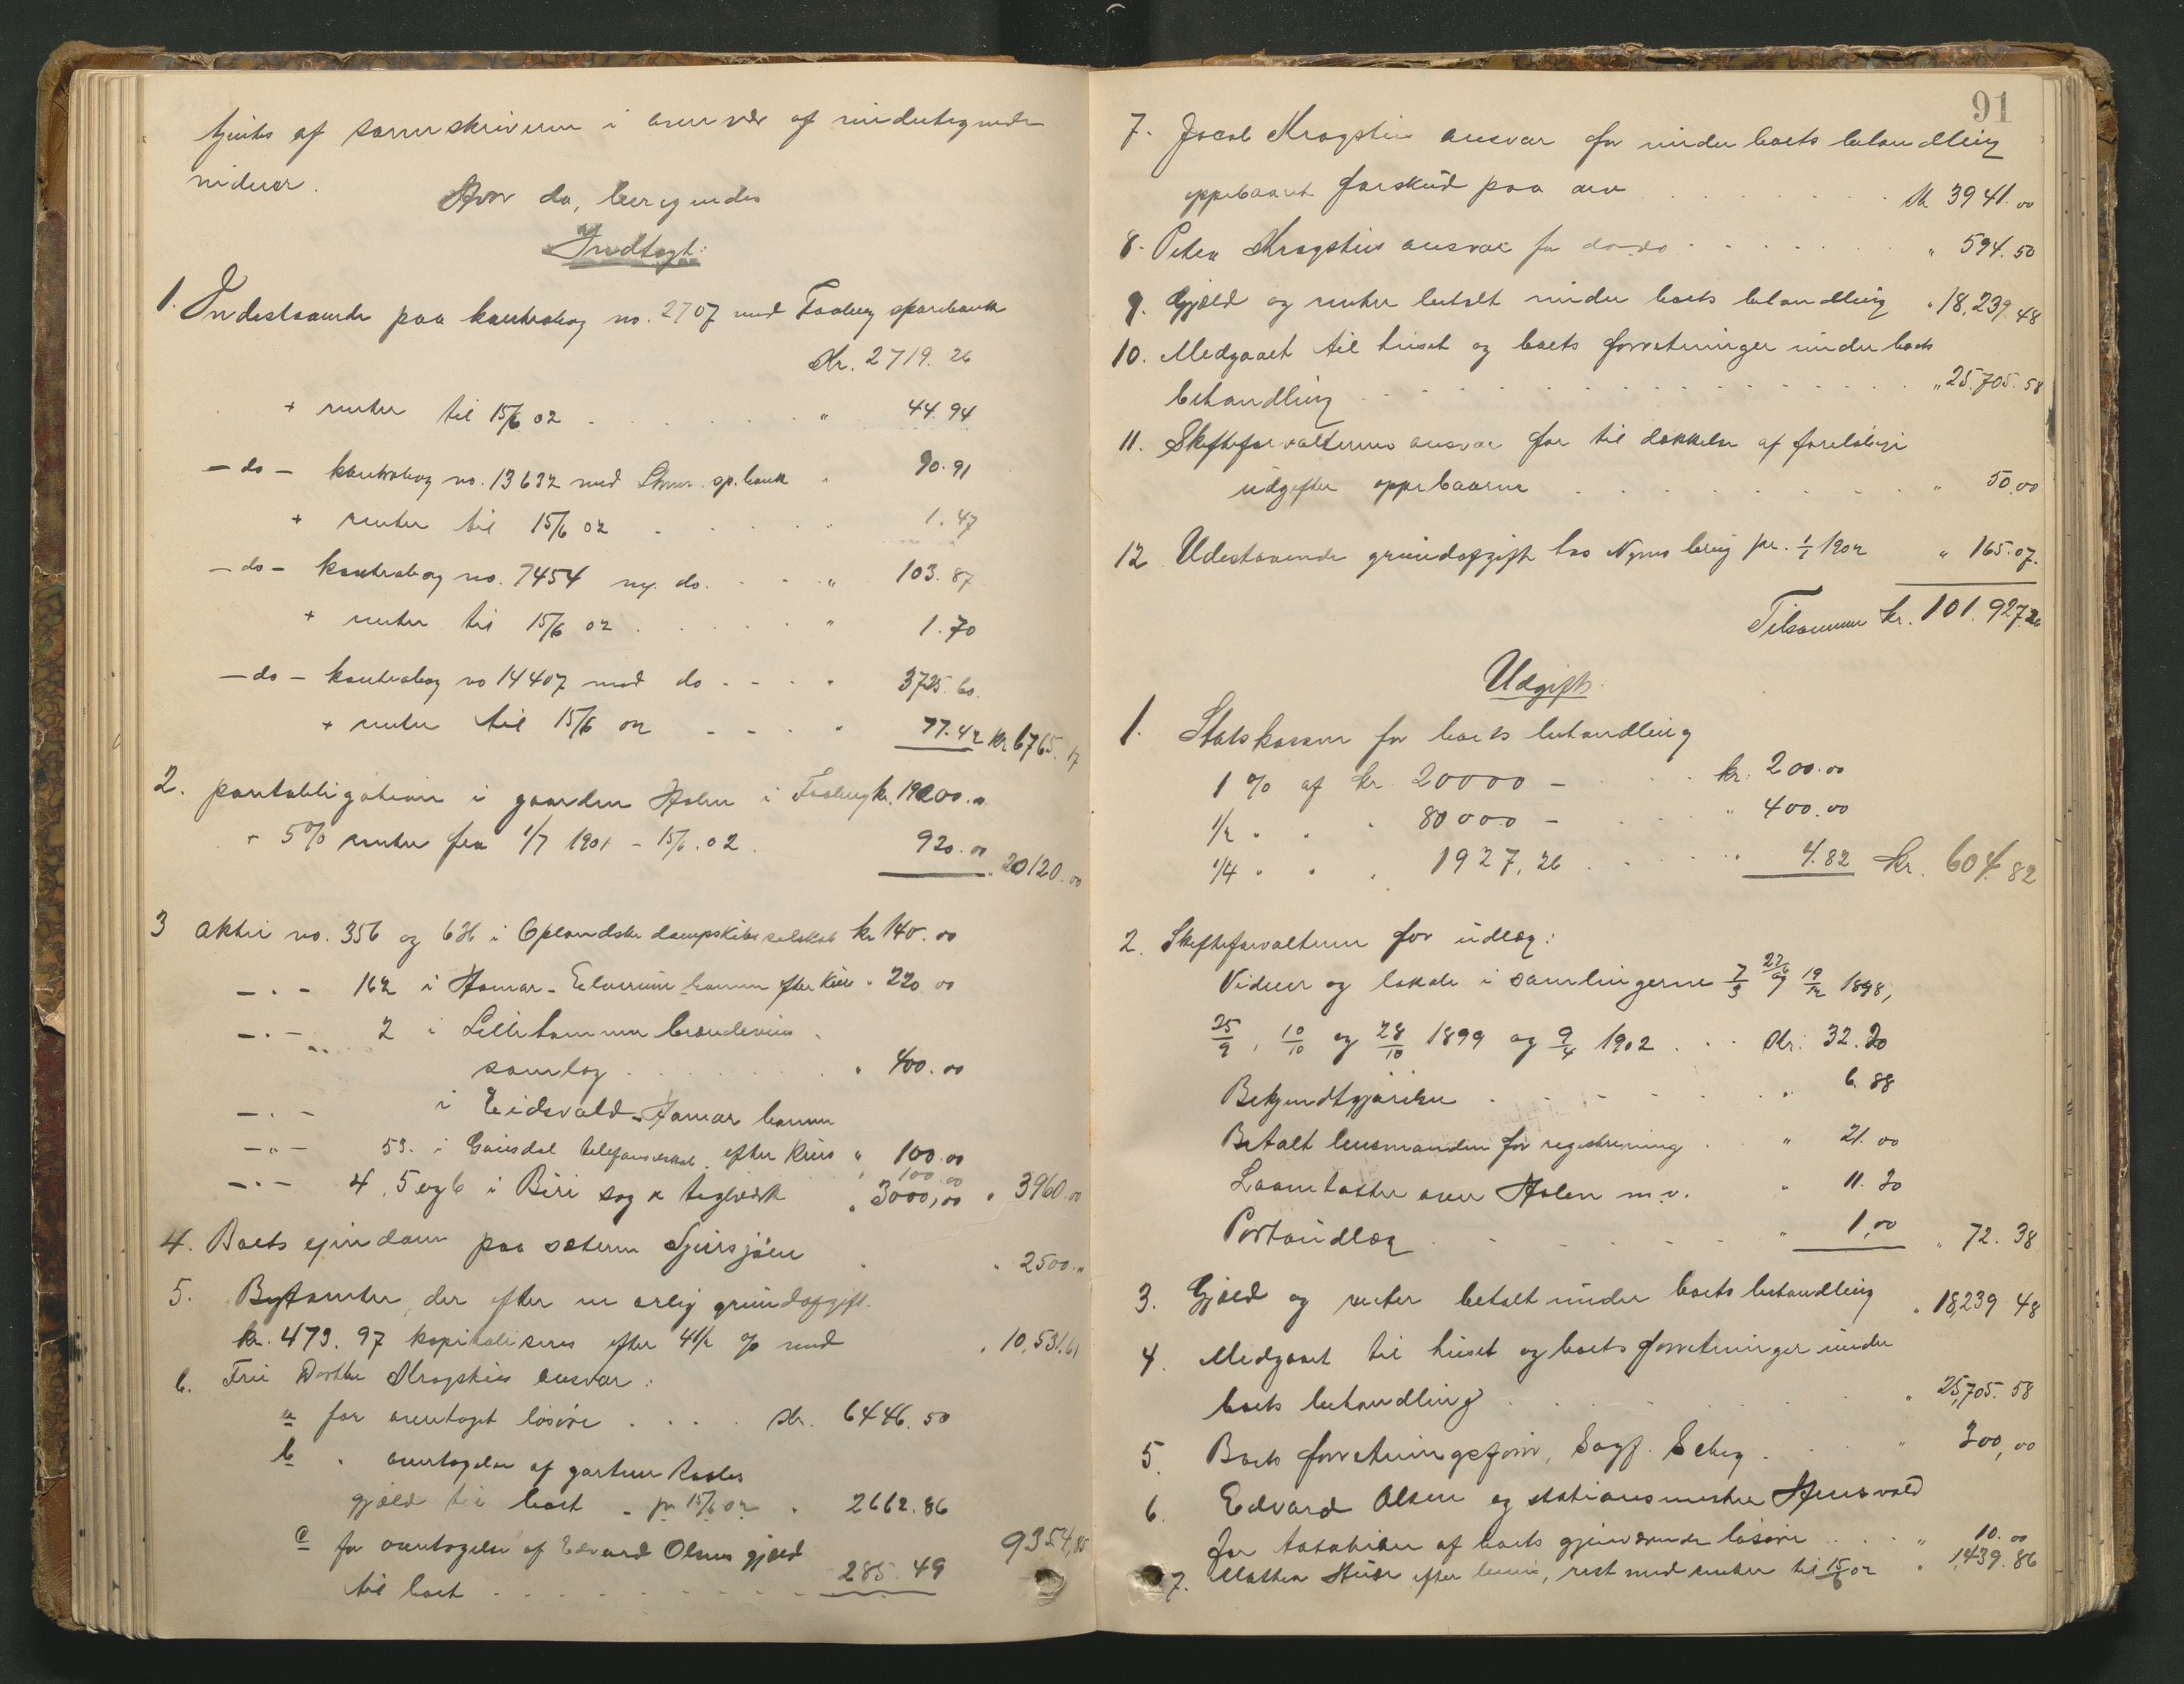 af sorenskriveren i overvær af undertegnede
vidner.
Hvor da, beregnedes
Indtægt:
1. Indestaaende paa kontrabog no. 2707 med Faaberg sparebank
Kr. 2719.26
+ renter til 15/6 02 . . . . . . " 44.94
- do - kontrabog no. 13632 med Lhmr. sp.bank " 90.91
+ renter til 15/6 02 . . . . . " 1.47
- do - kontrabog no. 7454 ny. do. . . . " 103.87
+ renter til 15/6 02 . . . . . " 1.70
- do - kontrabog no 14407 med do . . . " 3725.60.
+ renter til 15/6 02 . . . . " 77.42 kr 6765.17
2. pantobligation i gaarden Holen i Faaberg kr. 19200.00
+ 5% renter fra 1/7 1901 - 15/6.02. 920.00 " 20120.00
3 aktie no. 356 og 636 i Oplandske dampskibsselskab kr 140.00
- " - 162 i Hamar-Elverum banen efter kurs " 220 00
- " - 2 i Lillehammer brændevins
samlag . . . . . . . " 400.00
- " - i Eidsvold-Hamar banen
- " - 53. i Gausdal telefonselskab efter kurs " 100.00
" 100.00
- " - 4, 5 og 6 i Biri sag & teglværk " 3000,00 " 3960.00
4. Boets ejendom paa sæteren Sjusjøen " " 2500."
5. Bytomter, der efter en årlig grundafgift
kr. 473.97 kapitaliseres efter 4 1/2 % med " 10,531.61
6. Fru Dorthea Krogsties ansvar:
a for overtaget løsøre . . . . kr. 6446.50
b " overtagelse af gartner
gjæld til boet - pr 15/6 02 " 2662.86
c for overtagelse af Edvard Olsens gjæld
til boet . . . . . . . . . 285.49 9354,85
91
7. Jacob Krogsties ansvar for under boets behandling
oppebaaret forskud paa arv . . . . . . . . kr 3941.00
8. Peter Krogsties ansvar for do do . . . . . . " 594.50
9. Gjæld og renter betalt under boets behandling " 18,239.48
10. Medgaaet til huset og boets forretninger under boets
behandling . . . . . . . . . . . . . . . " 25.705.58
11. Skifteforvalterens ansvar for til dækkelse af foreløbige
udgifter oppebaarne . . . . . . . . . " 50.00
12. Udestaaende grundafgift hos Nyrus brug pr. 1/1 1902 " 165.07.
Tilsammen kr. 101.927.26
Udgift:
1. Statskassen for boets behandling
1 % af kr. 20000 - . . . . kr. 200.00
1/2 " " " 80000 - . . . . " 400.00
1/4 " " " 1927,26 . . . . " 4.82 kr. 604.82
2. Skifteforvalteren for udlæg:
Vidner og lokale i samlingerne 7/3 27/9 19/12 1898,
25/9, 10/10 og 28/10 1899 og 9/4 1902 . . . kr. 32.20
Bekjendtgjørelse . . . . . . . " 6.88
Betalt lensmanden for registrering . . " 21.00
Laanetakster over Holen m.v. " 11.30
Portoudlæg . . . . . . . " 1,00 " 72.38
3. Gjæld og renter betalt under boets behandling " 18,239 48
4. Medgaaet til huset og boets forretninger under
boets behandling . . . . . . . . . " 25,705.58
5. Boets forretningsfører, Sagf. . . . " 300,00
6. Edvard Olsen og stationsmester
for taxation af boets gjenværende løsøre . . . " 10.00
7. Mathea efter bevis, rest med renter til 15/6 02 " 1,439.86